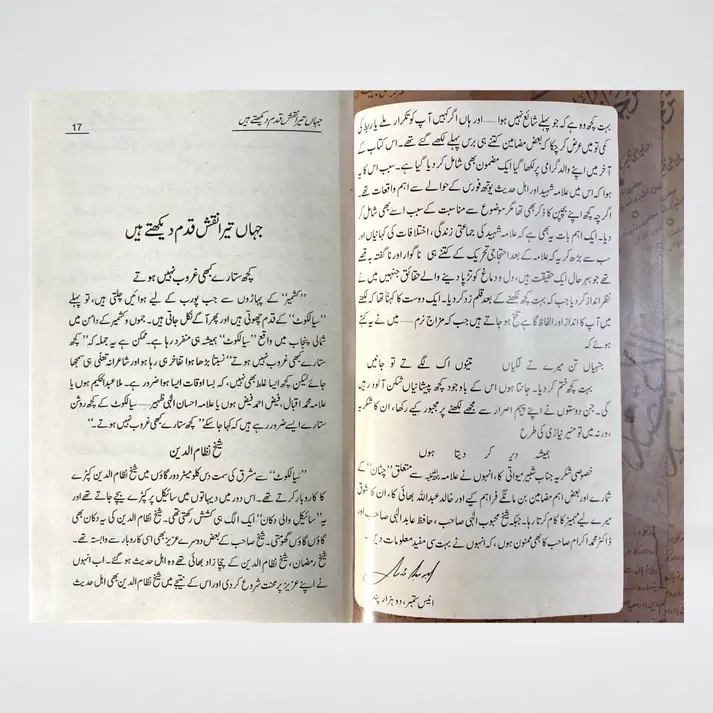 بہت کچھ وہ ہے کہ جو پہلے شائع نہیں ہوا……اور ہاں اگر کہیں آپ کو تکرار ملے یا ربط کی
کمی تو میں عرض کر چکا کہ بعض مضامین کتنے ہی برس پہلے لکھے گئے تھے۔ اس کتاب کے
آخر میں اپنے والد گرامی پر لکھا گیا ایک مضمون بھی شامل کر دیا گیا ہے۔ سبب اس کا یہ
ہوا کہ اس میں علامہ شہید اور اہل حدیث یوتھ فورس کے حوالے سے اہم واقعات تھے۔
اگرچہ کچھ اپنے بچپن کا ذکر بھی تھا مگر موضوع سے مناسبت کے سبب اسے بھی شامل کر
دیا۔ ایک اہم بات یہ بھی ہے کہ علامہ شہید کی جماعتی زندگی، اختلافات کی کہانیاں اور
سب سے بڑھ کر یہ کہ علامہ کے بعد احتجاجی تحریک کے کتنے ہی ناگوار اور ناگفتہ بہ قصے
تھے جو بہر حال ایک حقیقت ہیں، دل و دماغ کو تڑپا دینے والے حقائق جنہیں میں نے
نظر انداز کر دیا جب کہ بہت کچھ لکھنے کے بعد قلم زد کر دیا۔ ایک دوست کا کہنا تھا کہ لکھنے
میں آپ کا انداز اور الفاظ گاہے تلخ ہو جاتے ہیں جب کہ مزاج نرم……میں نے یہ کہتے
ہوئے کہ
جنہاں تن میرے تے لگیاں تینوں اک لگے تے توں جانیں
بہت کچھ ختم کر دیا۔ جانتا ہوں اس کے باوجود کچھ پیشانیاں شکن آلود رہیں
گی۔ جن دوستوں نے اپنے پیہم اصرار سے مجھے لکھنے پر مجبور کیے رکھا، ان کا شکریہ
، ورنہ میں تو منیر نیازی کی طرح
ہمیشہ دیر کر دیتا ہوں
خصوصی شکریہ جناب شبیر میواتی کا، انہوں نے علامہ رحمۃ اللہ علیہ سے متعلق ”چٹان“ کے
شمارے اور بعض اہم مضامین بن مانگے فراہم کیے اور خالد عبداللہ بھائی کا، ان کا شوق
میرے لیے مہمیز کا کام کرتا رہا۔ جبکہ شیخ محبوب الٰہی صاحب، حافظ عابد الٰہی صاحب اور
ڈاکٹر محمد اکرام صاحب کا بھی ممنون ہوں، کہ انہوں نے بہت سی مفید معلومات دیں۔
انیس ستمبر، دو ہزار پندرہ
جہاں تیرا نقش قدم دیکھتے ہیں
17
جہاں تیرا نقش قدم دیکھتے ہیں
کچھ ستارے کبھی غروب نہیں ہوتے
”کشمیر“ کے پہاڑوں سے جب پورب کے لیے ہوائیں چلتی ہیں، تو پہلے
”سیالکوٹ“ کے قدم چھوتی ہیں اور پھر آگے نکل جاتی ہیں۔ جموں و کشمیر کے دامن میں
شمالی پنجاب میں واقع ”سیالکوٹ“ ہمیشہ ہی منفرد رہا ہے۔ ممکن ہے یہ جملہ کہ ”کچھ
ستارے کبھی غروب نہیں ہوتے“ نسبتاً بڑھا ہوا تفاخر ہی رہا ہو اور شاعرانہ تعلّی ہی سمجھا
جائے لیکن کچھ ایسا غلط بھی نہیں، کہ بسا اوقات ایسا ہوا ضرور ہے۔ ملا عبدالحکیم ہوں یا
علامہ محمد اقبال، فیض احمد فیض ہوں یا علامہ احسان الٰہی ظہیر……سیالکوٹ کے کچھ روشن
ستارے ایسے ضرور رہے ہیں کہ کہا جا سکے ”کچھ ستارے کبھی غروب نہیں ہوتے۔“
شیخ نظام الدین
”سیالکوٹ“ سے مشرق کی سمت دس کلومیٹر دور گاؤں میں شیخ نظام الدین کپڑے
کا کاروبار کرتے تھے۔ اس دور میں دیہاتوں میں سائیکل پر کپڑے بیچے جاتے تھے اور
یہ ”سائیکل والی دکان“ ایک الگ ہی کشش رکھتی تھی۔ شیخ نظام الدین کی یہ دکان بھی
گاؤں گاؤں گھومتی۔ شیخ صاحب کے بعض دوسرے عزیز بھی اسی کاروبار سے وابستہ تھے۔
شیخ رمضان، شیخ نظام الدین کے چچا زاد بھائی تھے وہ اہل حدیث ہو گئے۔ اب انہوں
نے اپنے عزیز پر محنت شروع کر دی اور اس کے نتیجے میں شیخ نظام الدین بھی اہل حدیث